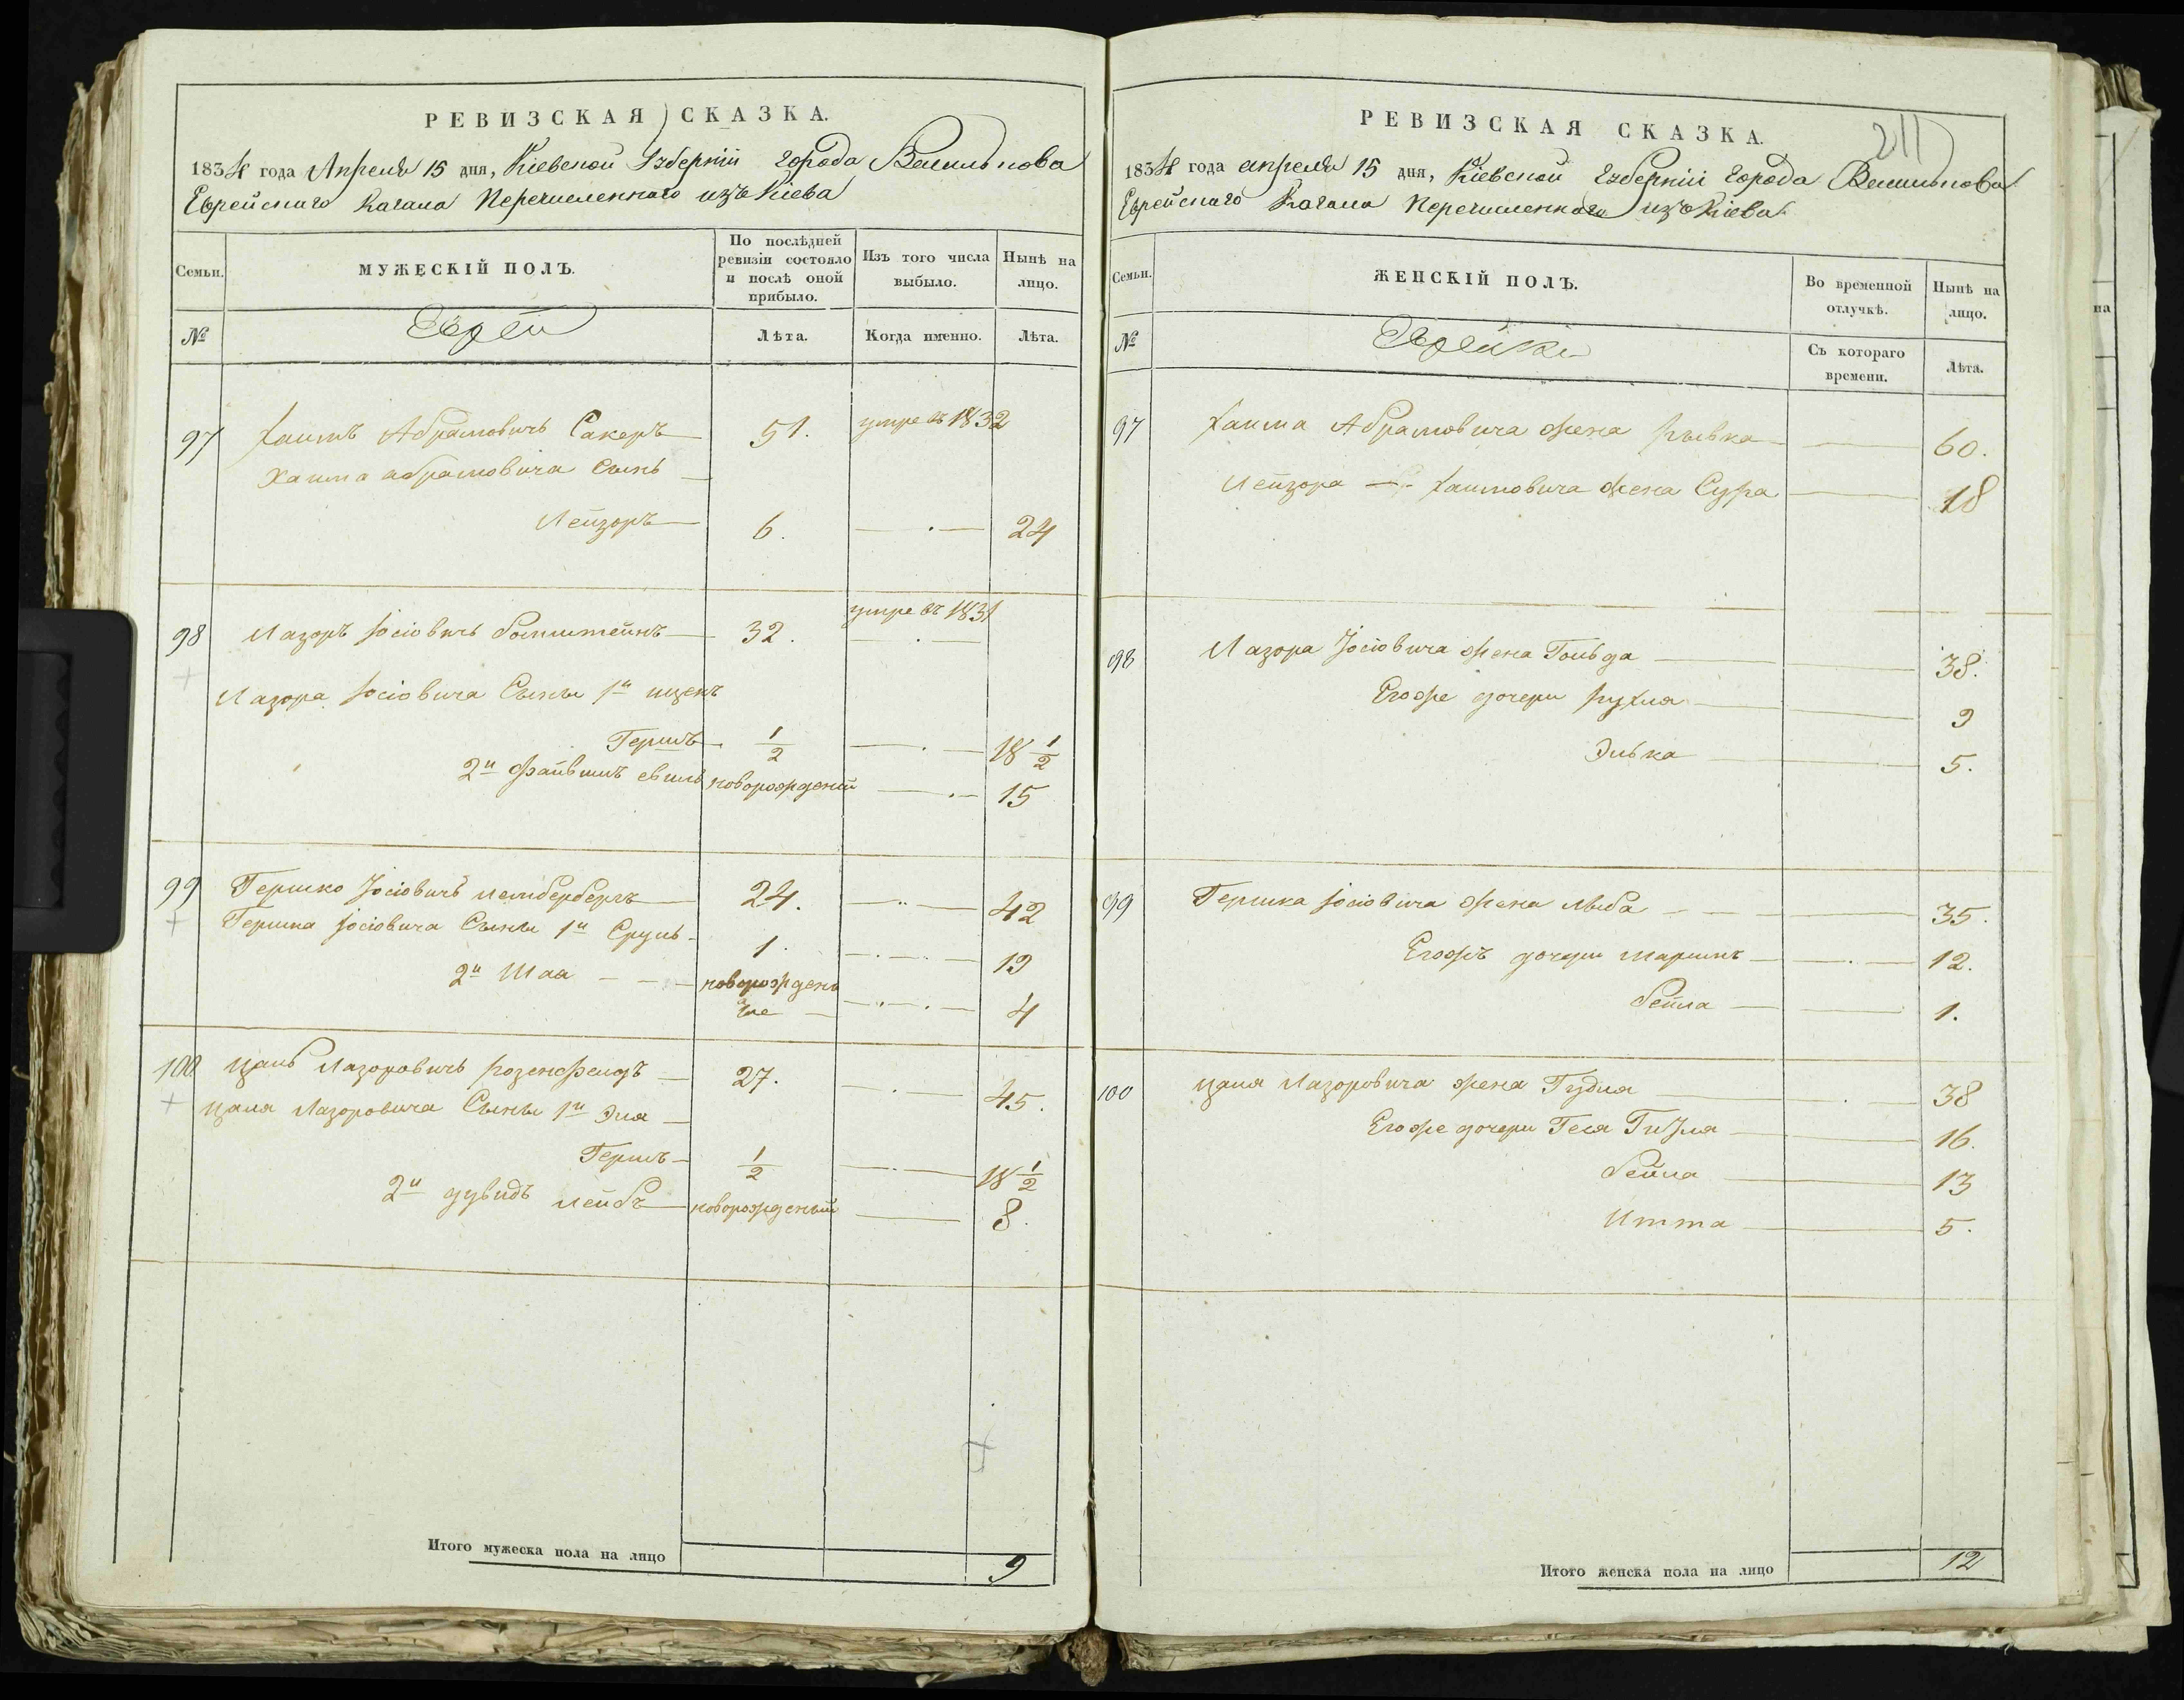 РЕВИЗСКАЯ СКАЗКА.
1834 года Апреля 15 дня, Кіевской Губерніи города Василькова
Еврейскаго Кагала Перечисленнаго изъ Кіева
Семьи.
МУЖЕСКІЙ ПОЛЪ.
По послѣдней ревизіи состояло и послѣ оной прибыло.
Изъ того числа выбыло.
Нынѣ на лицо.
№
Евреи
Лѣта.
Когда именно.
Лѣта.
97 Хаимъ Абрамовичь Сакеръ 51. умре въ 1832
Хаима абрамовича Сынъ
Лейзоръ 6. 24
98 Лазоръ Іосіовичь 32. умре въ 1831
Лазора Іосіовича Сыны 1й
Гершъ 1/2 18 1/2
2й Файвишъ новорожденый 15
99 Гершко Іосіовичь Лембербергъ 24. 42
Гершка Іосіовича Сыны 1й Сруль 1. 19
2й Шаа новорожден
ые 4
100 Цаль Лазоровичь Розенфелдъ 27. 45.
Цаля Лазоровича Сыны 1й Эля
Гершъ 1/2 18 1/2
2й дувидъ лейбъ новорожденый 8.
Итого мужеска пола на лицо 9
РЕВИЗСКАЯ СКАЗКА.
211
1834 года апреля 15 дня, Кіевской Губерніи Города Василькова
Еврейскаго Кагала Перечисленнаго изъ Кіева
Семьи.
ЖЕНСКІЙ ПОЛЪ.
Во временной отлучкѣ.
Нынѣ на лицо.
№
Еврейки
Съ котораго времени.
Лѣта.
97 Хаима Абрамовича жена Рывка 60.
Лейзора Хаимовича жена Сура 18
98 Лазора Іосіовича жена Гольда 38.
Егоже дочери Рухля 9
Элька 5.
99 Гершка Іосіовича жена Люба 35.
Егожъ дочери 12.
бейла 1.
100 Цаля Лазоровича жена Гудля 38
Егоже дочери Геся Гитля 16.
бейла 13
Итта 5.
Итого женска пола на лицо 12